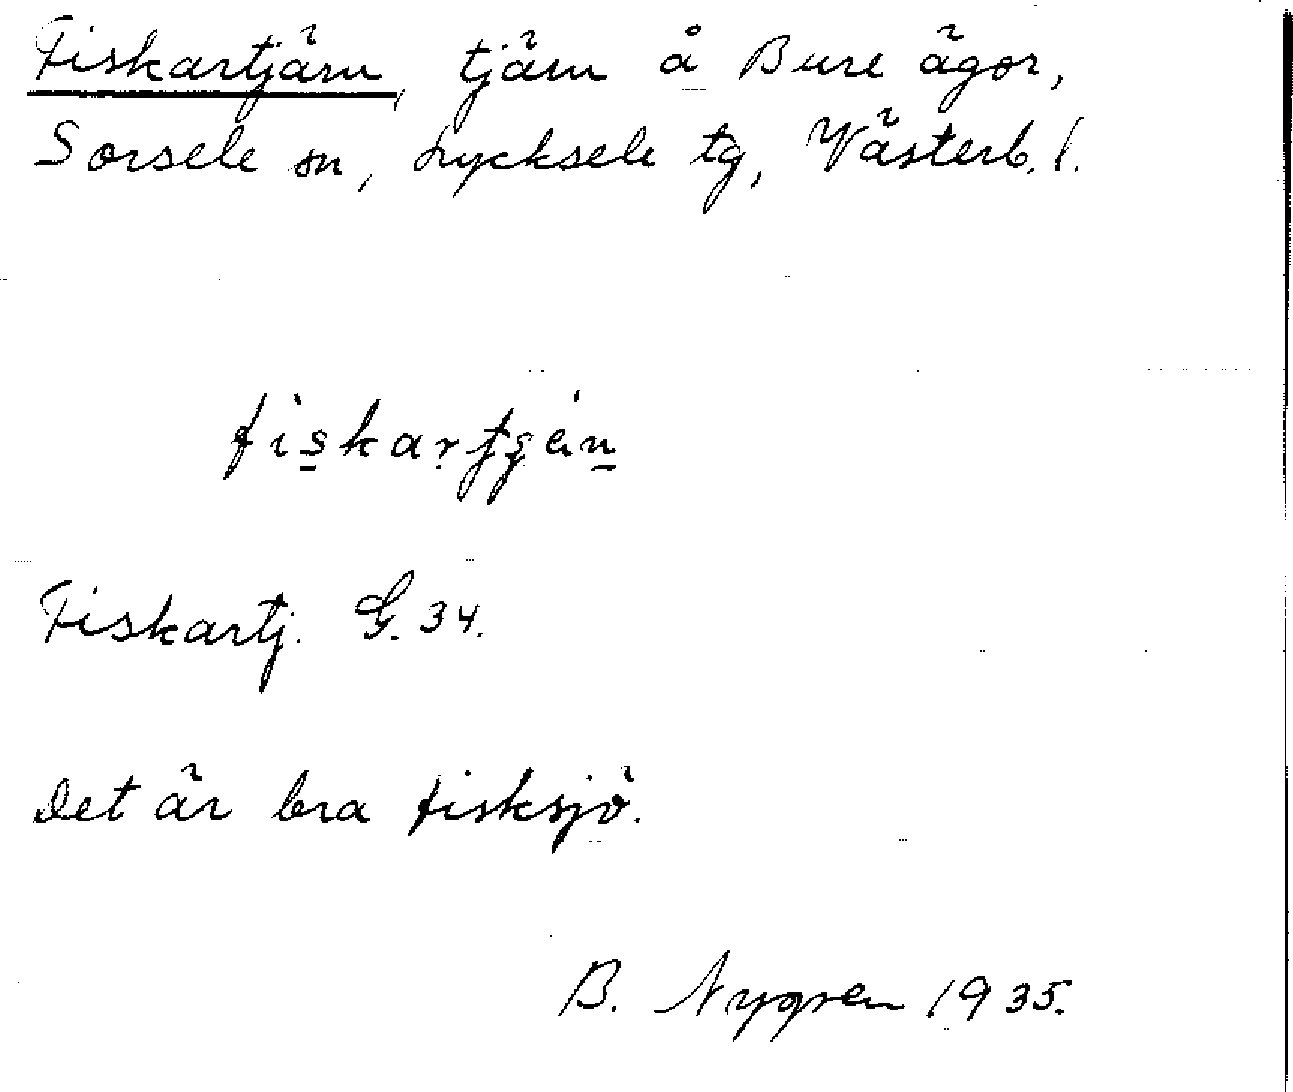 Fiskartjärn, tjärn å Bure ägor,
Sorsele sn, Lycksele tg, Västerb. l.
Fiskartj. G. 34.
Det är bra fisksjö.
B. Nygren 1935.